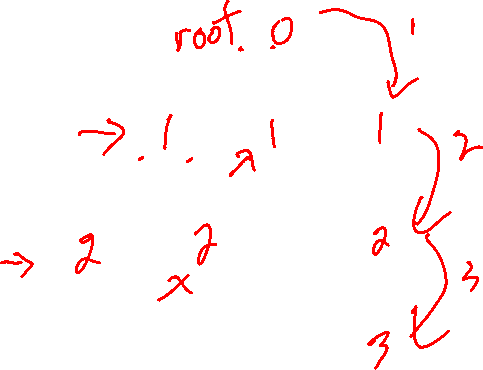 root. 0 1
→ .1. x 1 1 2
→ 2 x 2 2 3
3